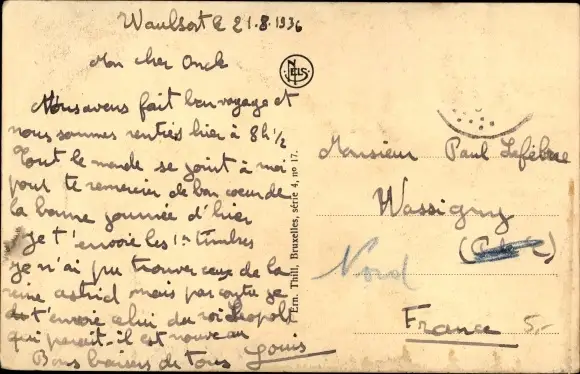 Waulsort le 21.8.1936
Mon cher Oncle
Nous avons fait bon voyage et
nous sommes rentrés hier à 8h 1/2
Tout le monde se joint à moi
pour te remercier de bon coeur de
la bonne journée d'hier
Je t'envoie les 1rs timbres
je n'ai pu trouver ceux de la
reine astrid mais par contre je
t'envoie celui du roi Léopold
qui parait-il est nouveau
Bons baisers de tous Louis
NELS
Ern. Thill, Bruxelles, série 4, no 17.
Monsieur Paul Lefébvre
Wassigny
Nord
France 5,-